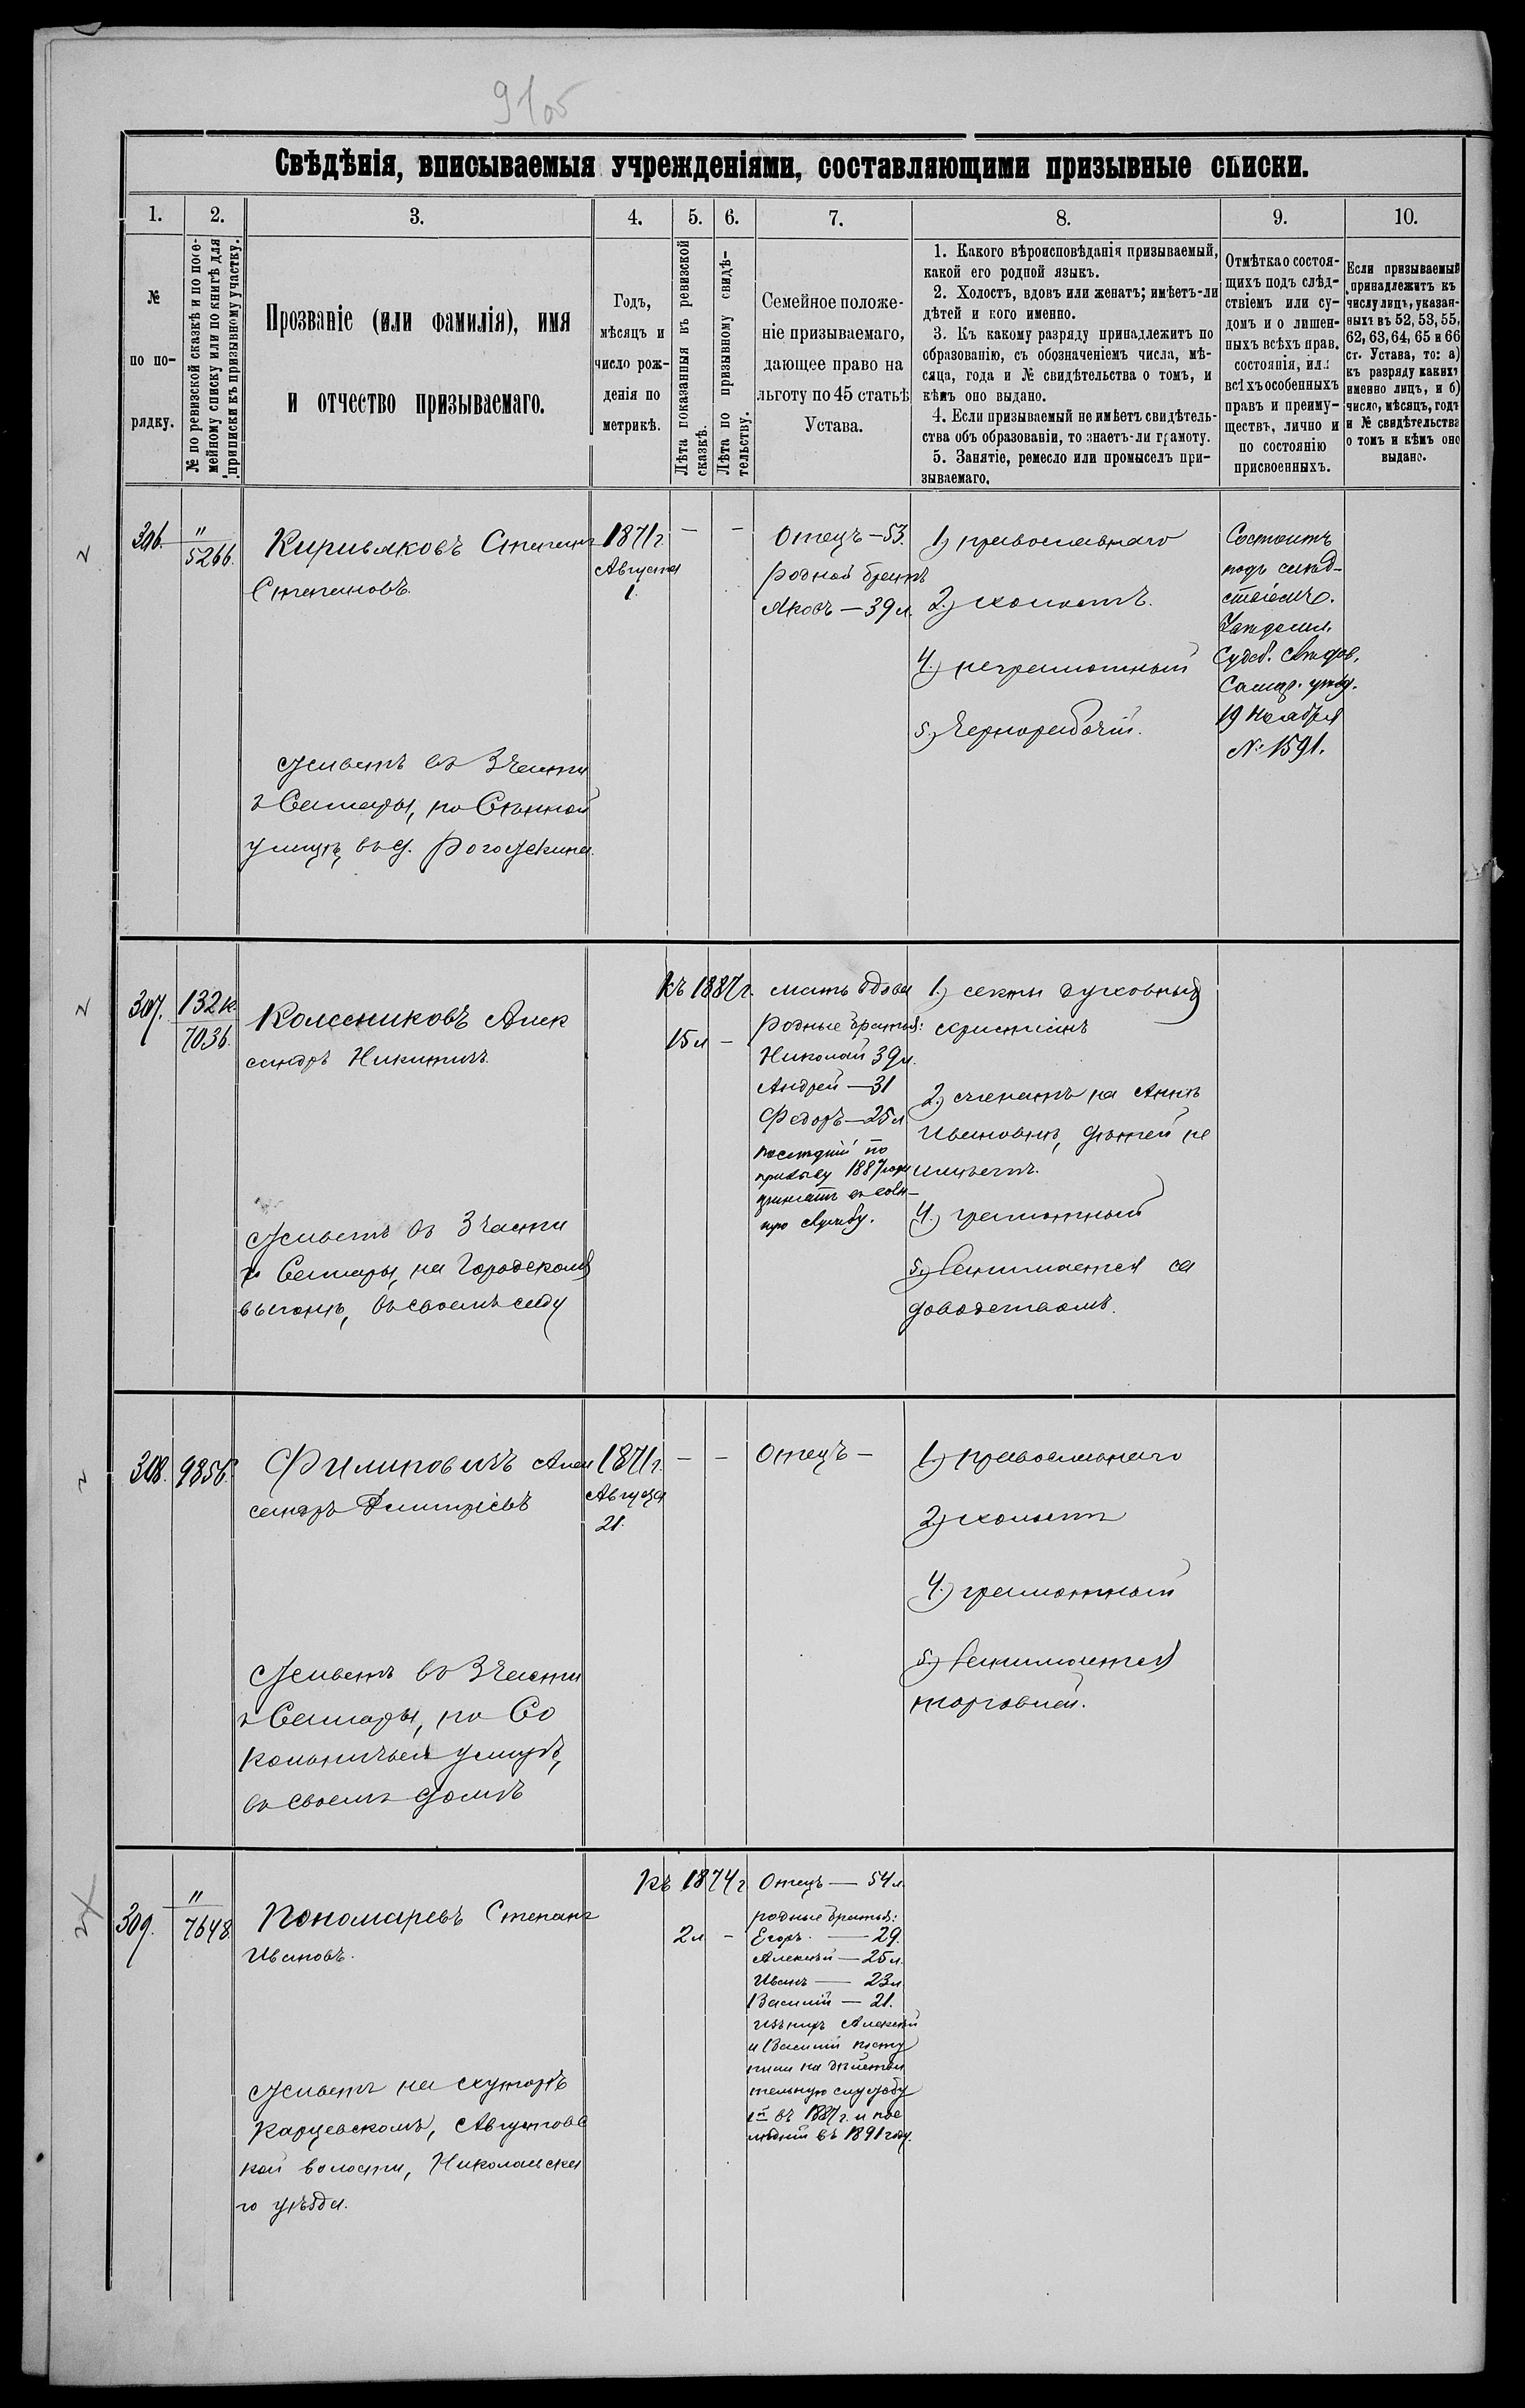 91об
Свѣдѣнія, вписываемыя учрежденіями, составляющими призывные списки.
1.
2.
3.
4.
5.
6.
7.
8.
9.
10.
№
по по-
рядку.
№ по ревизской сказкѣ и по посе-
мейному списку или по книгѣ для
приписки къ призывному участку.
Прозваніе (или фамилія), имя
и отчество призываемаго.
Годъ,
мѣсяцъ и
число рож-
денія по
метрикѣ.
Лѣта показанныя въ ревизской
сказкѣ.
Лѣта по призывному свидѣ-
тельству.
Семейное положе-
ніе призываемаго,
дающее право на
льготу по 45 статьѣ
Устава.
1. Какого вѣроисповѣданія призываемый,
какой его родной языкъ.
2. Холостъ, вдовъ или женатъ; имѣетъ-ли
дѣтей и кого именно.
3. Къ какому разряду принадлежитъ по
образованію, съ обозначеніемъ числа, мѣ-
сяца, года и № свидѣтельства о томъ, и
кѣмъ оно выдано.
4. Если призываемый не имѣетъ свидѣтель-
ства объ образованіи, то знаетъ-ли грамоту.
5. Занятіе, ремесло или промыселъ при-
зываемаго.
Отмѣтка о состоя-
щихъ подъ слѣд-
ствіемъ или су-
домъ и о лишен-
ныхъ всѣхъ прав.
состоянія, или
всѣхъ особенныхъ
правъ и преиму-
ществъ, лично и
по состоянію
присвоенныхъ.
Если призываемый
принадлежитъ къ
числу лицъ, указан-
ныхъ въ 52, 53, 55,
62, 63, 64, 65 и 66
ст. Устава, то: а)
къ разряду какихъ
именно лицъ, и б)
число, мѣсяцъ, годъ
и № свидѣтельства
о томъ и кѣмъ оно
выдано.
306.
"
5266.
Кирьяковъ Степанъ
Степановъ.
1871 г.
Августа
1.
—
—
Отецъ — 53.
родной братъ
Яковъ — 39 л.
1.) православнаго
2.) холостъ.
4.) неграмотный
5.) Чернорабочій.
Состоитъ
подъ слѣд-
ствіемъ.
Судеб. Слѣдов.
Самар. уѣзд.
19 Ноября
№ 1591.
Живетъ въ 3 части
г Самары, по Сѣнной
улицѣ, въ д. Рогожкина.
307.
132 к
7036.
Колесниковъ Алек
сандръ Никитичъ.
къ 1887 г.
15 л —
мать вдова
Родные братья:
Николай 39 л.
Андрей — 31
Федоръ — 25 л
последній по
призыву 1887 года
принятъ въ воен-
ную службу.
1.) секты духовныхъ
христіанъ
2.) женатъ на Аннѣ
Ивановнѣ, дѣтей не
имѣетъ.
4.) грамотный
5.) Занимается са
доводствомъ.
Живетъ въ 3 части
г. Самары, на Городскомъ
выгонѣ, въ своемъ саду
308.
9856.
Филиповичъ Алек
сандръ Дмитріевъ
1871 г.
Августа
21.
—
—
Отецъ —
1.) православнаго
2.) холостъ
4.) грамотный
5.) Занимается
торговлей.
Живетъ въ 3 части
г Самары, по Со
кольничьей улицѣ,
въ своемъ домѣ
309.
"
7648.
Пономаревъ Степанъ
Ивановъ.
къ 1874 г
2 л —
Отецъ — 54 л.
родные братья:
Егоръ — 29.
Алексѣй — 25 л.
Иванъ — 23 л
Василій — 21.
изъ нихъ Алексѣй
и Василій посту
пили на дѣйстви
тельную службу
1й въ 1887 г. и пос
лѣдній въ 1891 году.
Живетъ на хуторѣ
Карцевскомъ, Августовс
кой волости, Николаевска
го уѣзда.